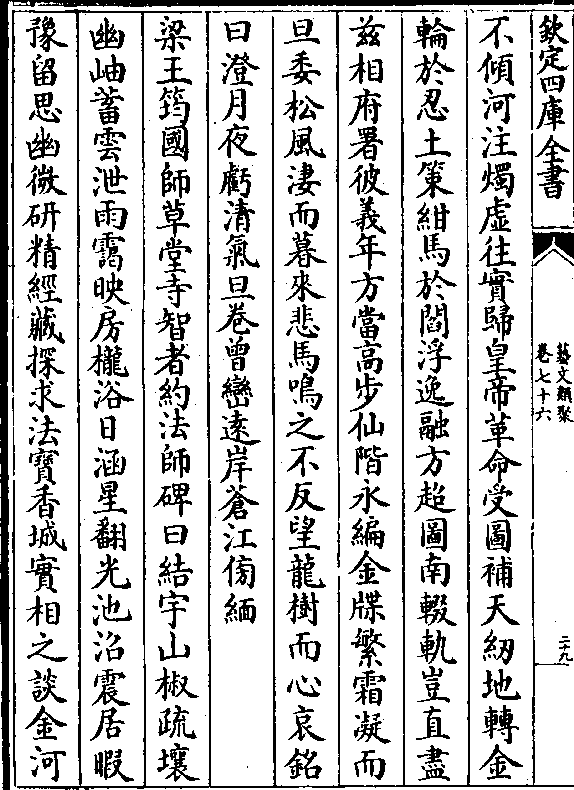 欽定四庫全書
藝文類聚
卷七十六
二十九
不傾河注燭虛往實歸皇帝革命受圖補天紉地轉金
輪於忍土策紺馬於閻浮逸融方超圖南輟軌豈直盡
茲相府署彼義年方當高步仙階永編金牒繁霜凝而
旦委松風淒而暮來悲馬鳴之不反望龍樹而心哀銘
曰澄月夜虧清氣旦卷曾巒遠岸蒼江傍緬
梁王筠國師草堂寺智者約法師碑曰結宇山椒疏壤
幽岫蓄雲泄雨靄映房櫳浴日涵星翻光池沼震居暇
豫留思幽微研精經藏探求法寶香城實相之談金河